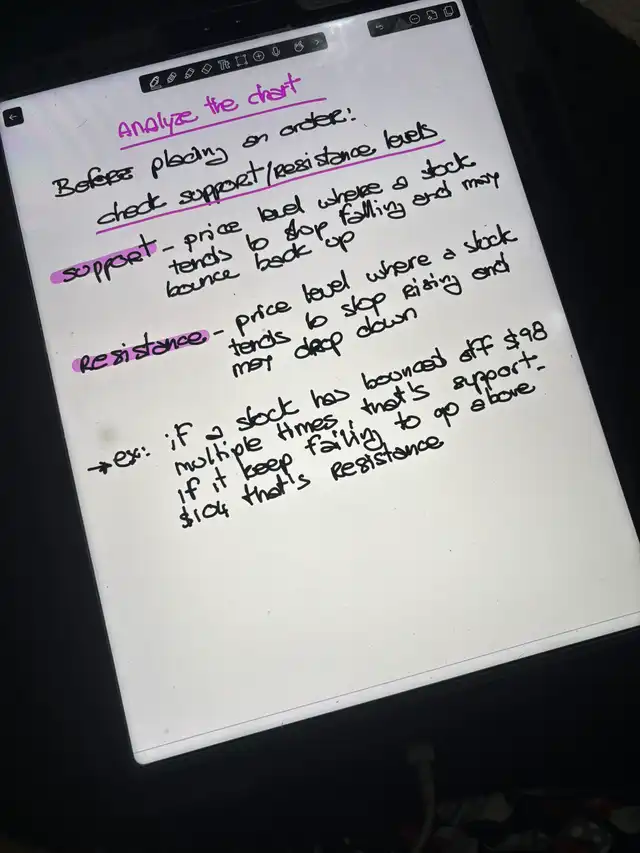 Analyze the chart
Before placing an order:
check support/resistance levels
support - price level where a stock
tends to stop falling and may
bounce back up
Resistance - price level where a stock
tends to stop rising and
may drop down
→ ex: if a stock has bounced off $98
multiple times that's support.
if it keep failing to go above
$104 that's resistance